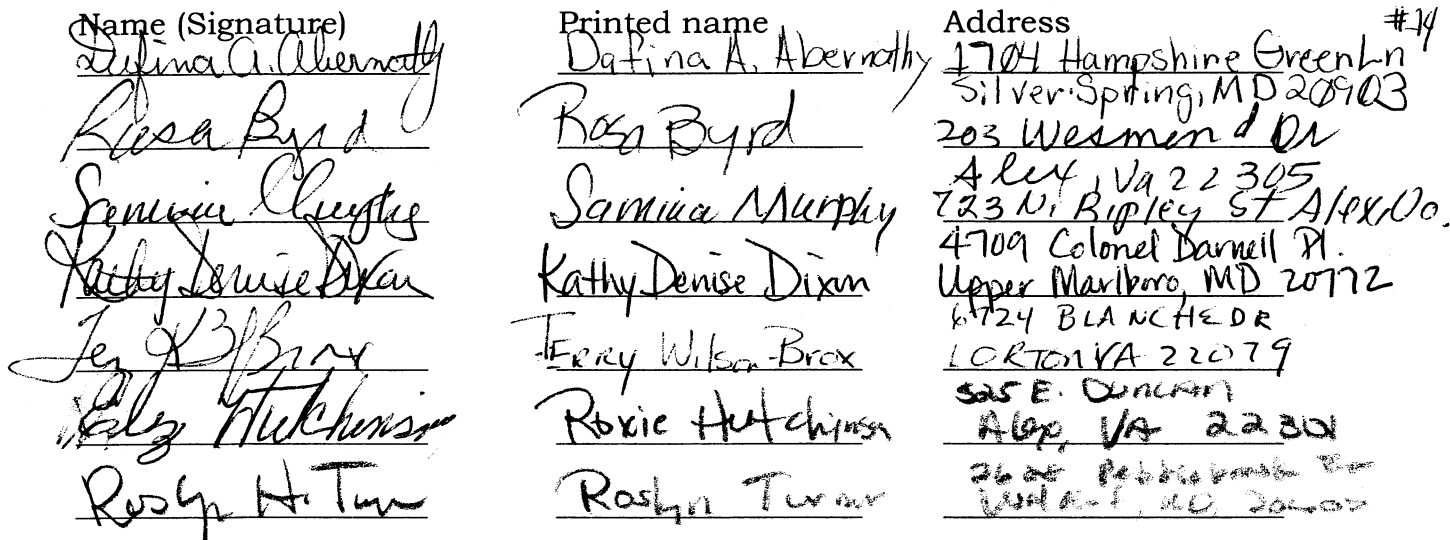 Name (Signature) Printed name Address #14
Dafina A. Abernathy Dafina A. Abernathy 1704 Hampshire Green Ln
Silver Spring, MD 20903
Rosa Byrd Rosa Byrd 203 Dr
Alex, Va 22305
Samiua Murphy 723 N. Ripley St Alex, Va.
Kathy Denise Dixon Kathy Denise Dixon 4709 Colonel Darnell Pl.
Upper Marlboro, MD 20772
Terry Wilson-Brox 6724 BLANCHE DR
LORTON VA 22079
Hutchinson Roxie Hutchinson 525 E. DUNCAN
Alex, VA 22301
Roslyn H. Turner Roslyn Turner
MD